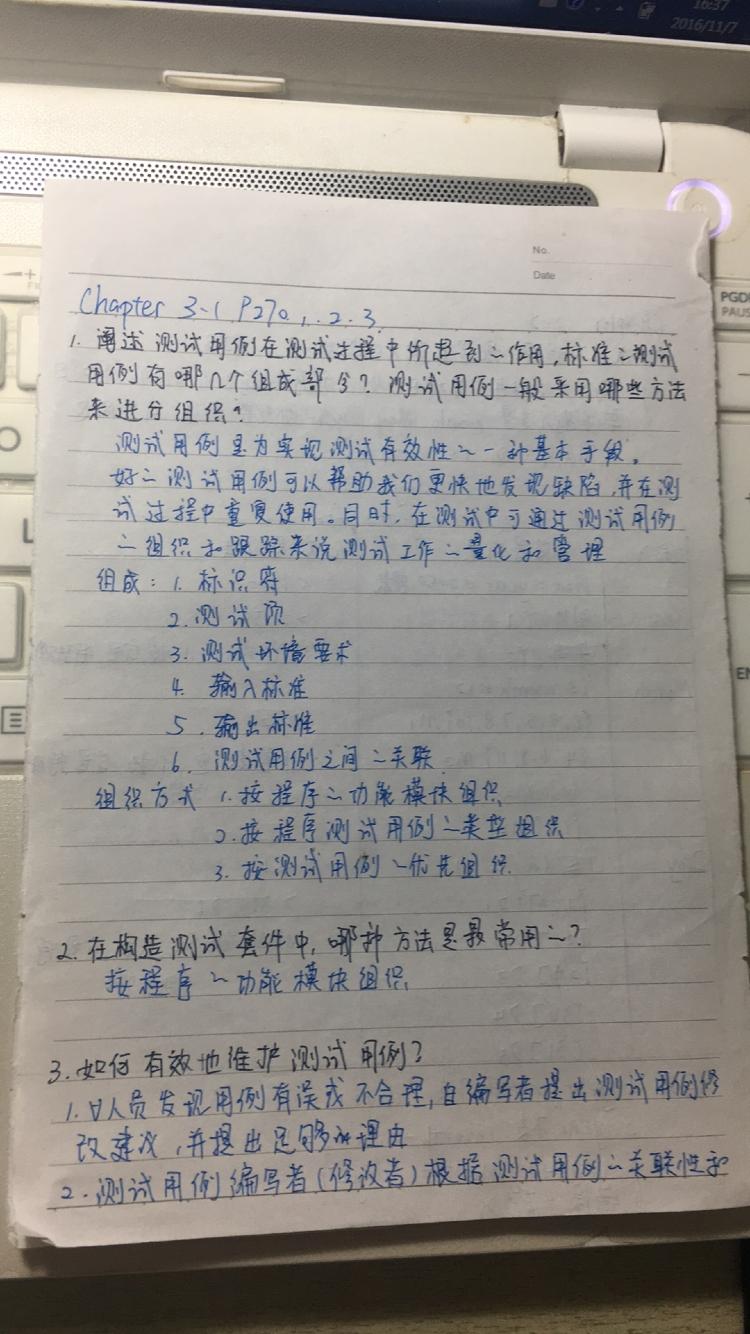 16:37
2016/11/7
No.
Date
PGD
PAUS
Chapter 3-1 P270 1.2.3
1. 阐述测试用例在测试过程中所起到〜作用,标准〜测试
用例有哪几个组成部分?测试用例一般采用哪些方法
来进行组织?
测试用例是为实现测试有效性〜一种基本手段。
好〜测试用例可以帮助我们更快地发现缺陷,并在测
试过程中重复使用。同时,在测试中可通过测试用例
〜组织和跟踪来说测试工作〜量化和管理
组成:1. 标识符
2. 测试项
3. 测试环境要求
4. 输入标准
5. 输出标准
6. 测试用例之间〜关联
组织方式 1. 按程序〜功能模块组织
2. 按程序测试用例〜类型组织
3. 按测试用例〜优先组织.
2. 在构造测试套件中,哪种方法是最常用〜?
按程序〜功能模块组织
3. 如何有效地维护测试用例?
1. ∀人员发现用例有误或不合理,自编写者提出测试用例修
改建议,并提出足够的理由
2. 测试用例编写者(修改者)根据测试用例〜关联性和